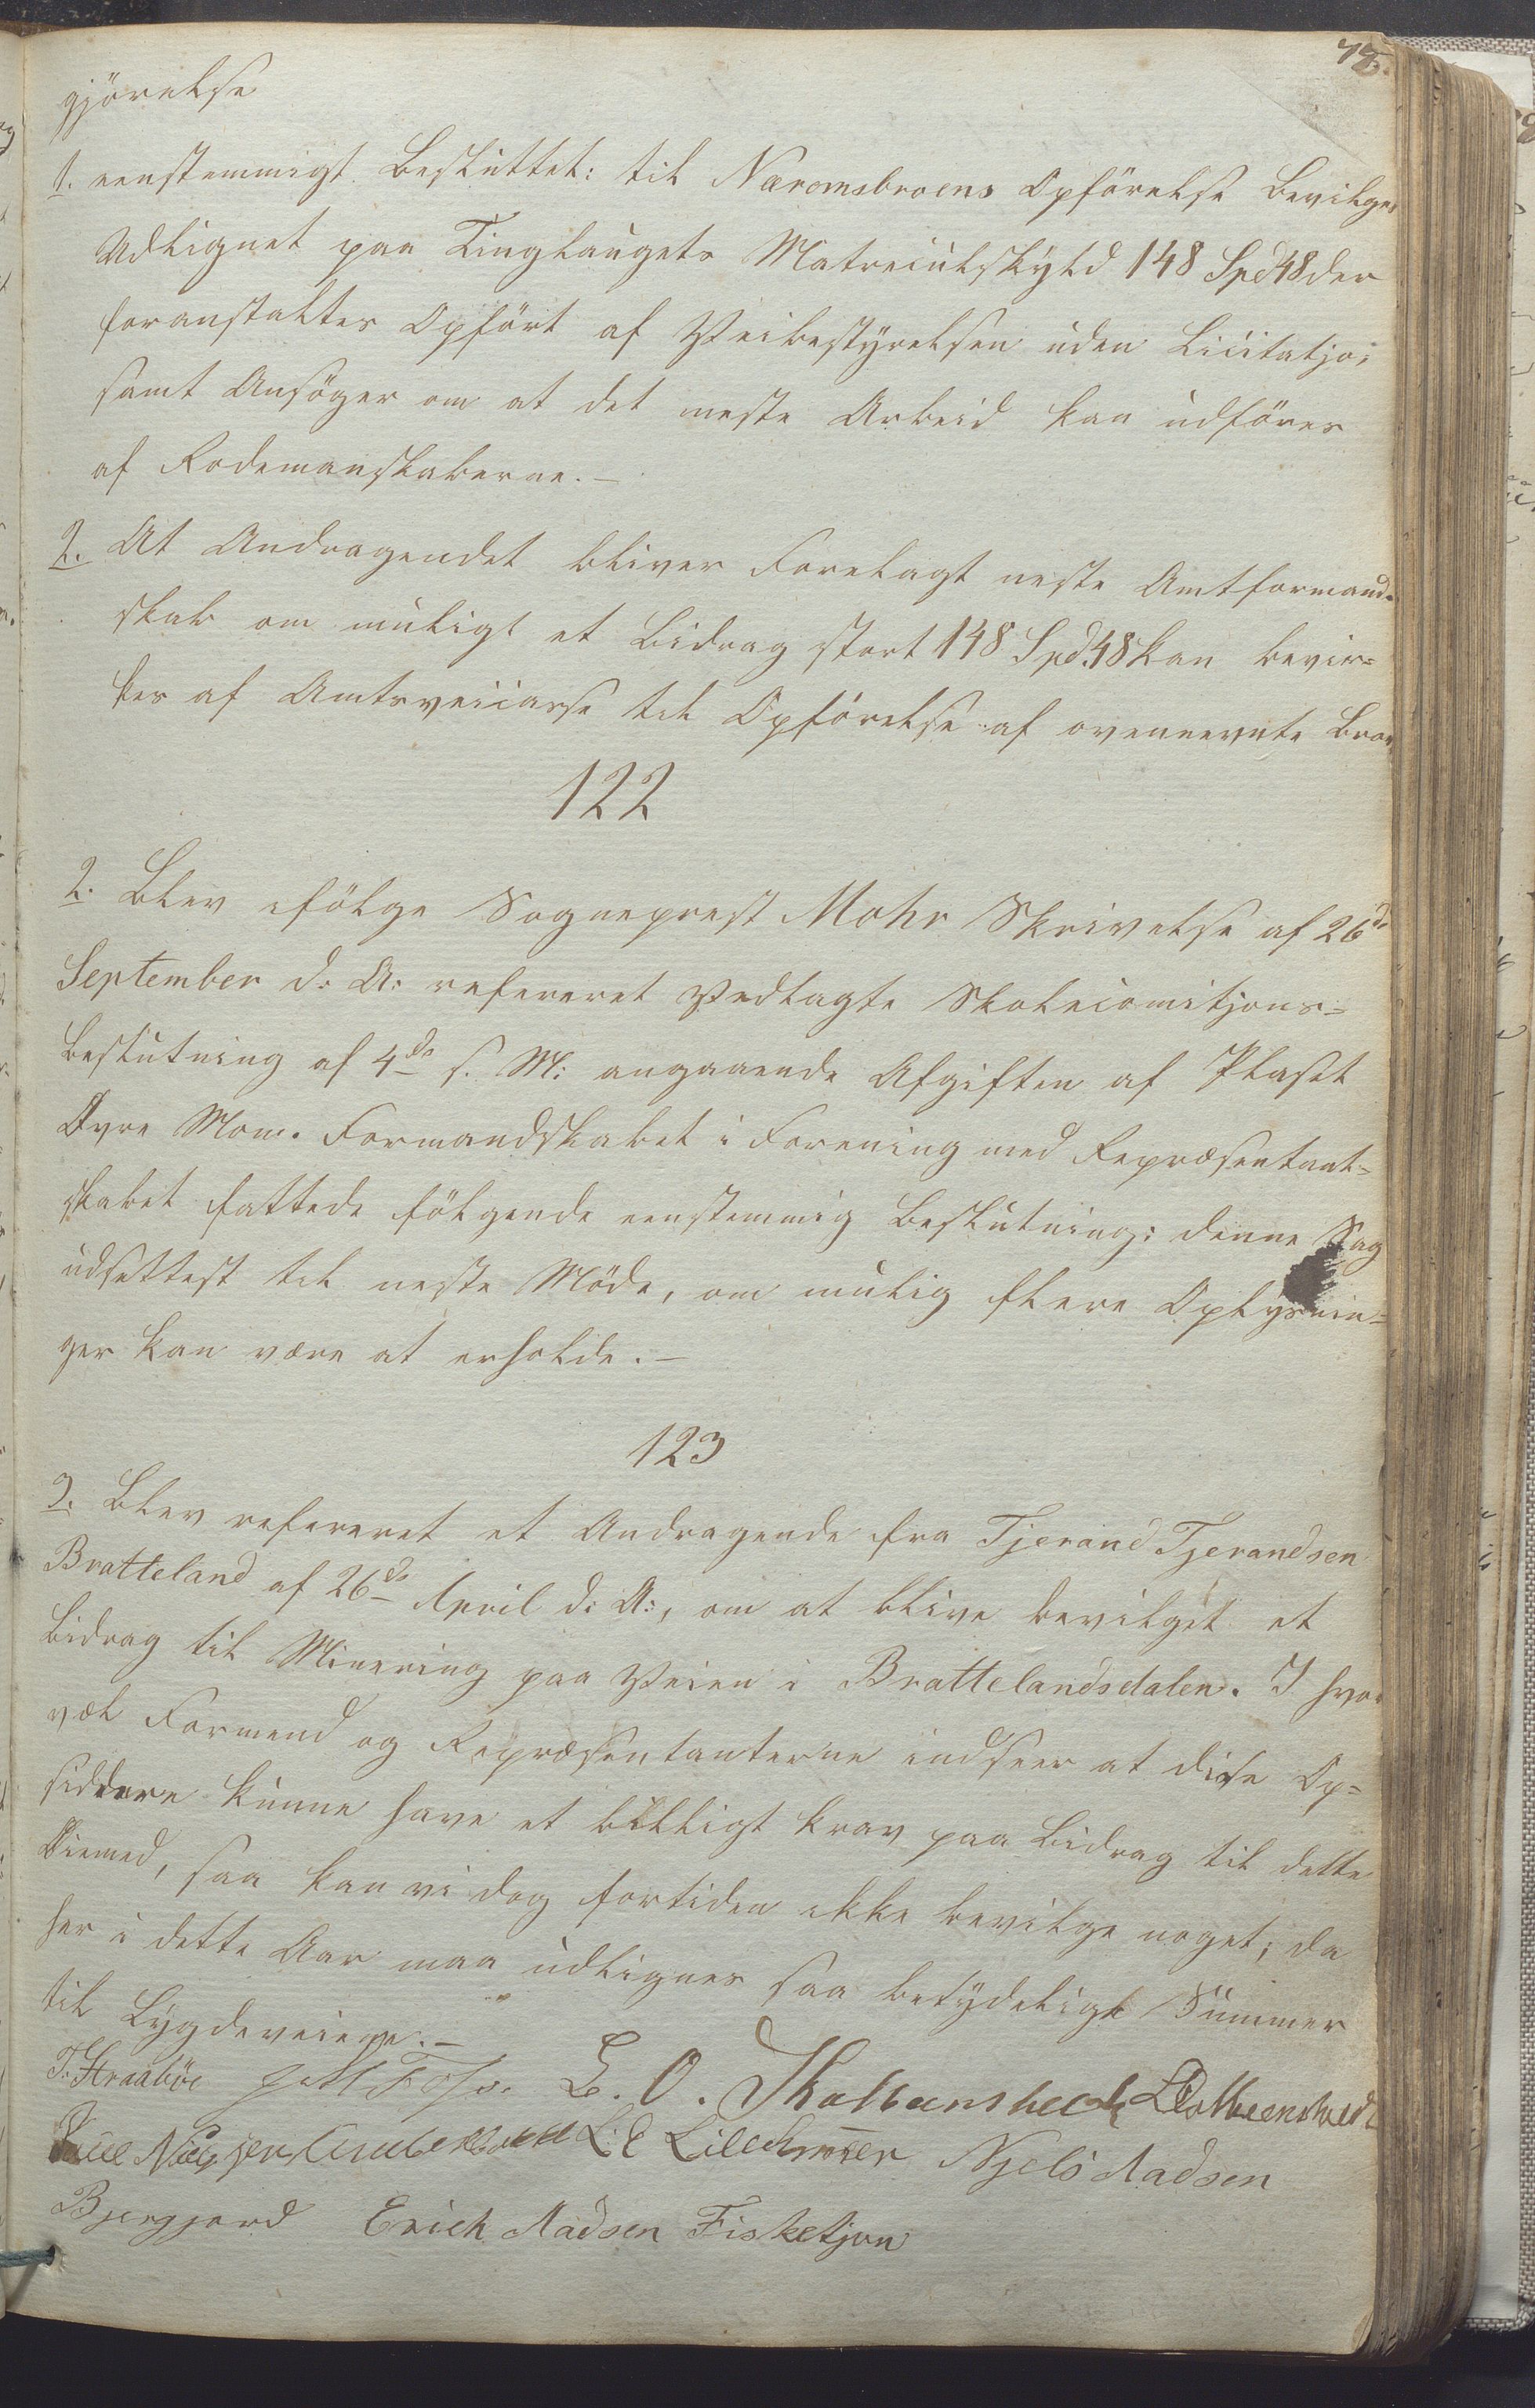 gjörelse
1. eenstemmigt besluttet: til Næromsbroens Opförelse bevilges
Udlignet paa Tinglaugets Matrculskyld 148 Spd 48 der
foranstaltes Opfört af Veibestyrelsen uden Licitatjo,
samt Ansöger om at det meste Arbeid kan udföres
af Rodemanskaberne.-
2. At Andragendet bliver Forelagt neste Amtformand-
skab om muligt et Bidrag stort 148 Spd. 48 kan bevir=
kes af Amtsveicasse til Opförelse af ovennevnte Broe
122
2. Blev ifölge Sogneprest Mohr Skrivelse af 26de
September d: A: refereret Vedlagte Skolecomitjons=
beslutning af 4de s. M: angaaende Afgiften af Plaset
Övre Mom. Formandskabet i Forening med Repræsentant=
skabet fattede fölgende eenstemmig beslutning: denne Sag
udsettest til neste Möde, om mulig flere Oplysnin=
ger kan være at erholde.-
123
3. Blev refereret et Andragende fra Tjerand Tjerandsen
Bratteland af 26de April d: A:, om at blive bevilget et
bidrag til Minering paa Veien i Brattelandsdalen. I hvor
vel Formend og Repræsentanterne indseer at disse Op=
siddere kunne have et billigt krav paa Bidrag til dette
Öiemed, saa kan vi dog fortiden ikke bevilge noget; da
her i dette Aar maa udlignes saa betydeligt Summer
til Bygdeveiene.-
T. Straaböe Foss. L. O. Skolbenshed
L L Lillehammer Njels Madsen
Bjergjord Erich Madsen Fisketjon